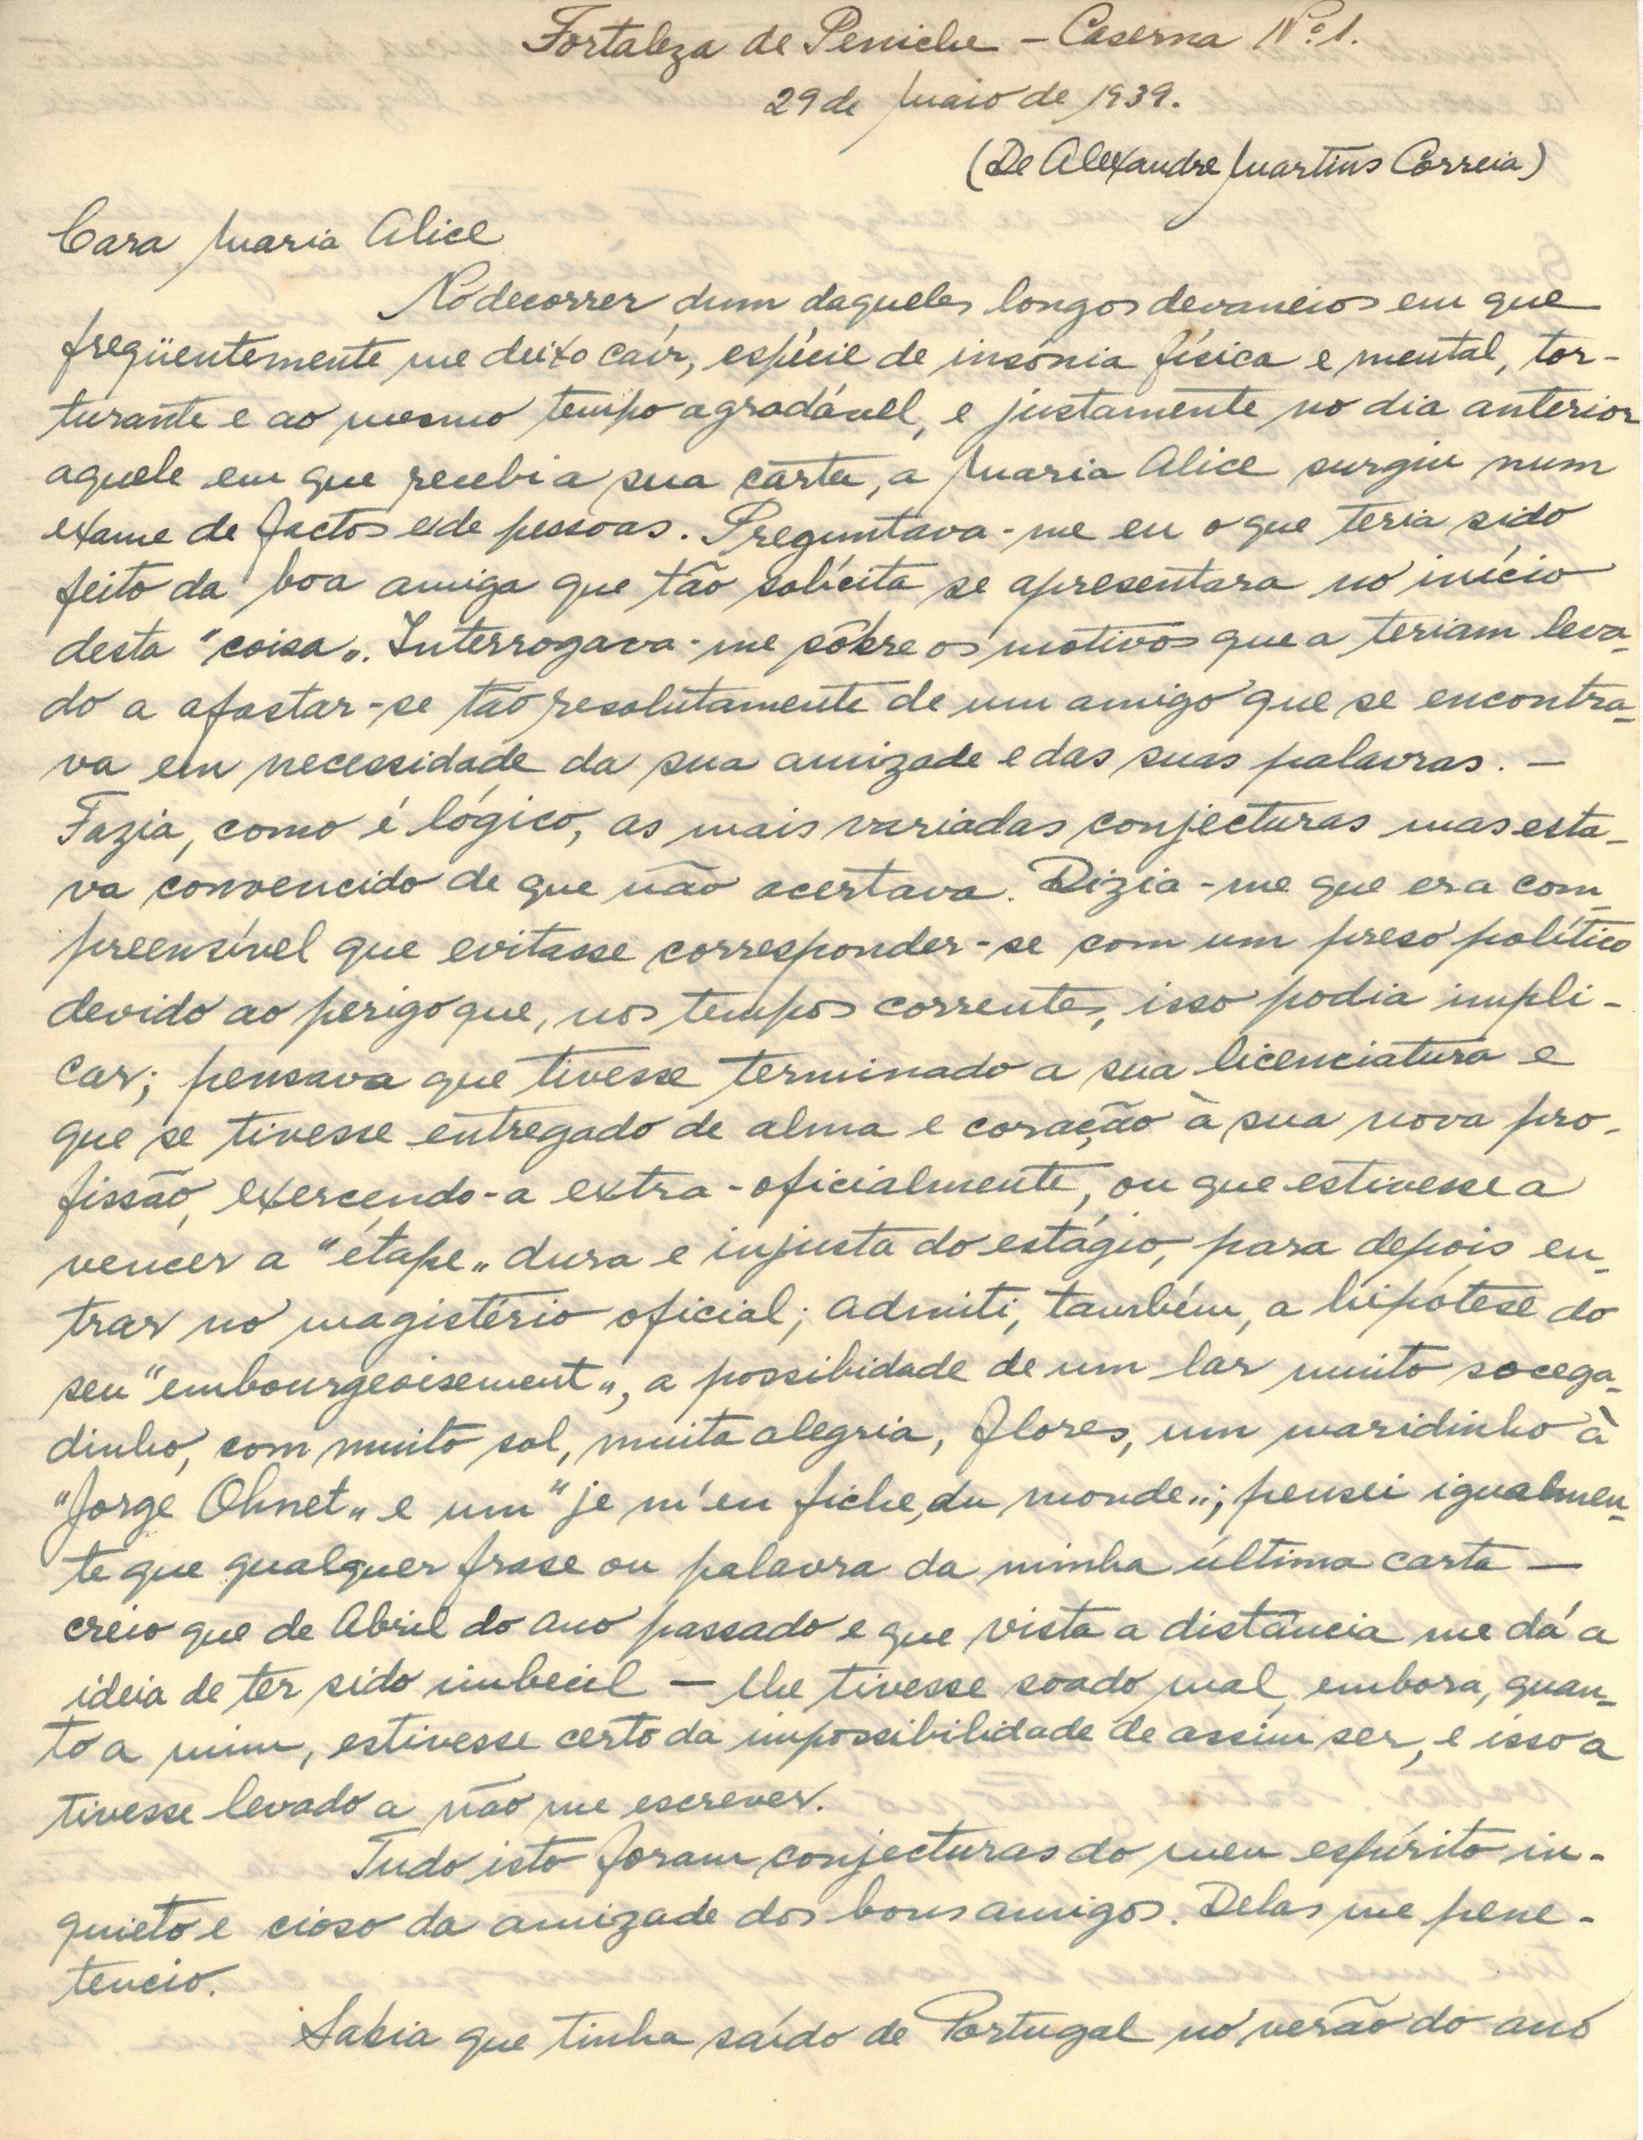 Fortaleza de Peniche — Caserna Nº 1.
29 de Maio de 1939.
(De Alexandre Martins Correia)
Cara Maria Alice
No decorrer dum daqueles longos devaneios em que
freqüentemente me deixo caír, espécie de insónia física e mental, tor-
turante e ao mesmo tempo agradável, e justamente no dia anterior
aquele em que recebi a sua carta, a Maria Alice surgiu num
exame de factos e de pessoas. Preguntava-me eu o que teria sido
feito da boa amiga que tão solícita se apresentara no início
desta "coisa". Interrogava-me sôbre os motivos que a teriam leva-
do a afastar-se tão resolutamente de um amigo que se encontra-
va em necessidade da sua amizade e das suas palavras. —
Fazia, como é lógico, as mais variadas conjecturas mas esta-
va convencido de que não acertava. Dizia-me que era com-
preensível que evitasse corresponder-se com um preso político
devido ao perigo que, nos tempos correntes, isso podia impli-
car; pensava que tivesse terminado a sua licenciatura e
que se tivesse entregado de alma e coração à sua nova pro-
fissão, exercendo-a extra-oficialmente, ou que estivesse a
vencer a "étape" dura e injusta do estágio, para depois en-
trar no magistério oficial; admiti, também, a hipótese do
seu "embourgeoisement", a possibidade de um lar muito socega-
dinho, com muito sol, muita alegria, flores, um maridinho à
"Jorge Ohnet" e um "je m'en fiche, du monde"; pensei igualmen-
te que qualquer frase ou palavra da minha última carta —
creio que de Abril do ano passado e que vista a distância me dá a
ideia de ter sido imbecil — lhe tivesse soado mal, embora, quan-
to a mim, estivesse certo da impossibilidade de assim ser, e isso a
tivesse levado a não me escrever.
Tudo isto foram conjecturas do meu espírito in-
quieto e cioso da amizade dos bons amigos. Delas me pene-
tencio.
Sabia que tinha saído de Portugal no verão do ano